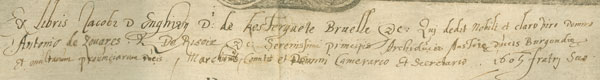 Ex libris Jacobi D Enghien D.ⁱ de Kestergaete Bruelle &c Qui dedit Nobili et claro viro Domino
Antonio de Souares &c Serenissimi principis Archiducis Austriæ Ducis Burgundiæ
et omnium provinciarum Marchio Comiti et Domini Camerario et Secretario . 1605 fratri suo